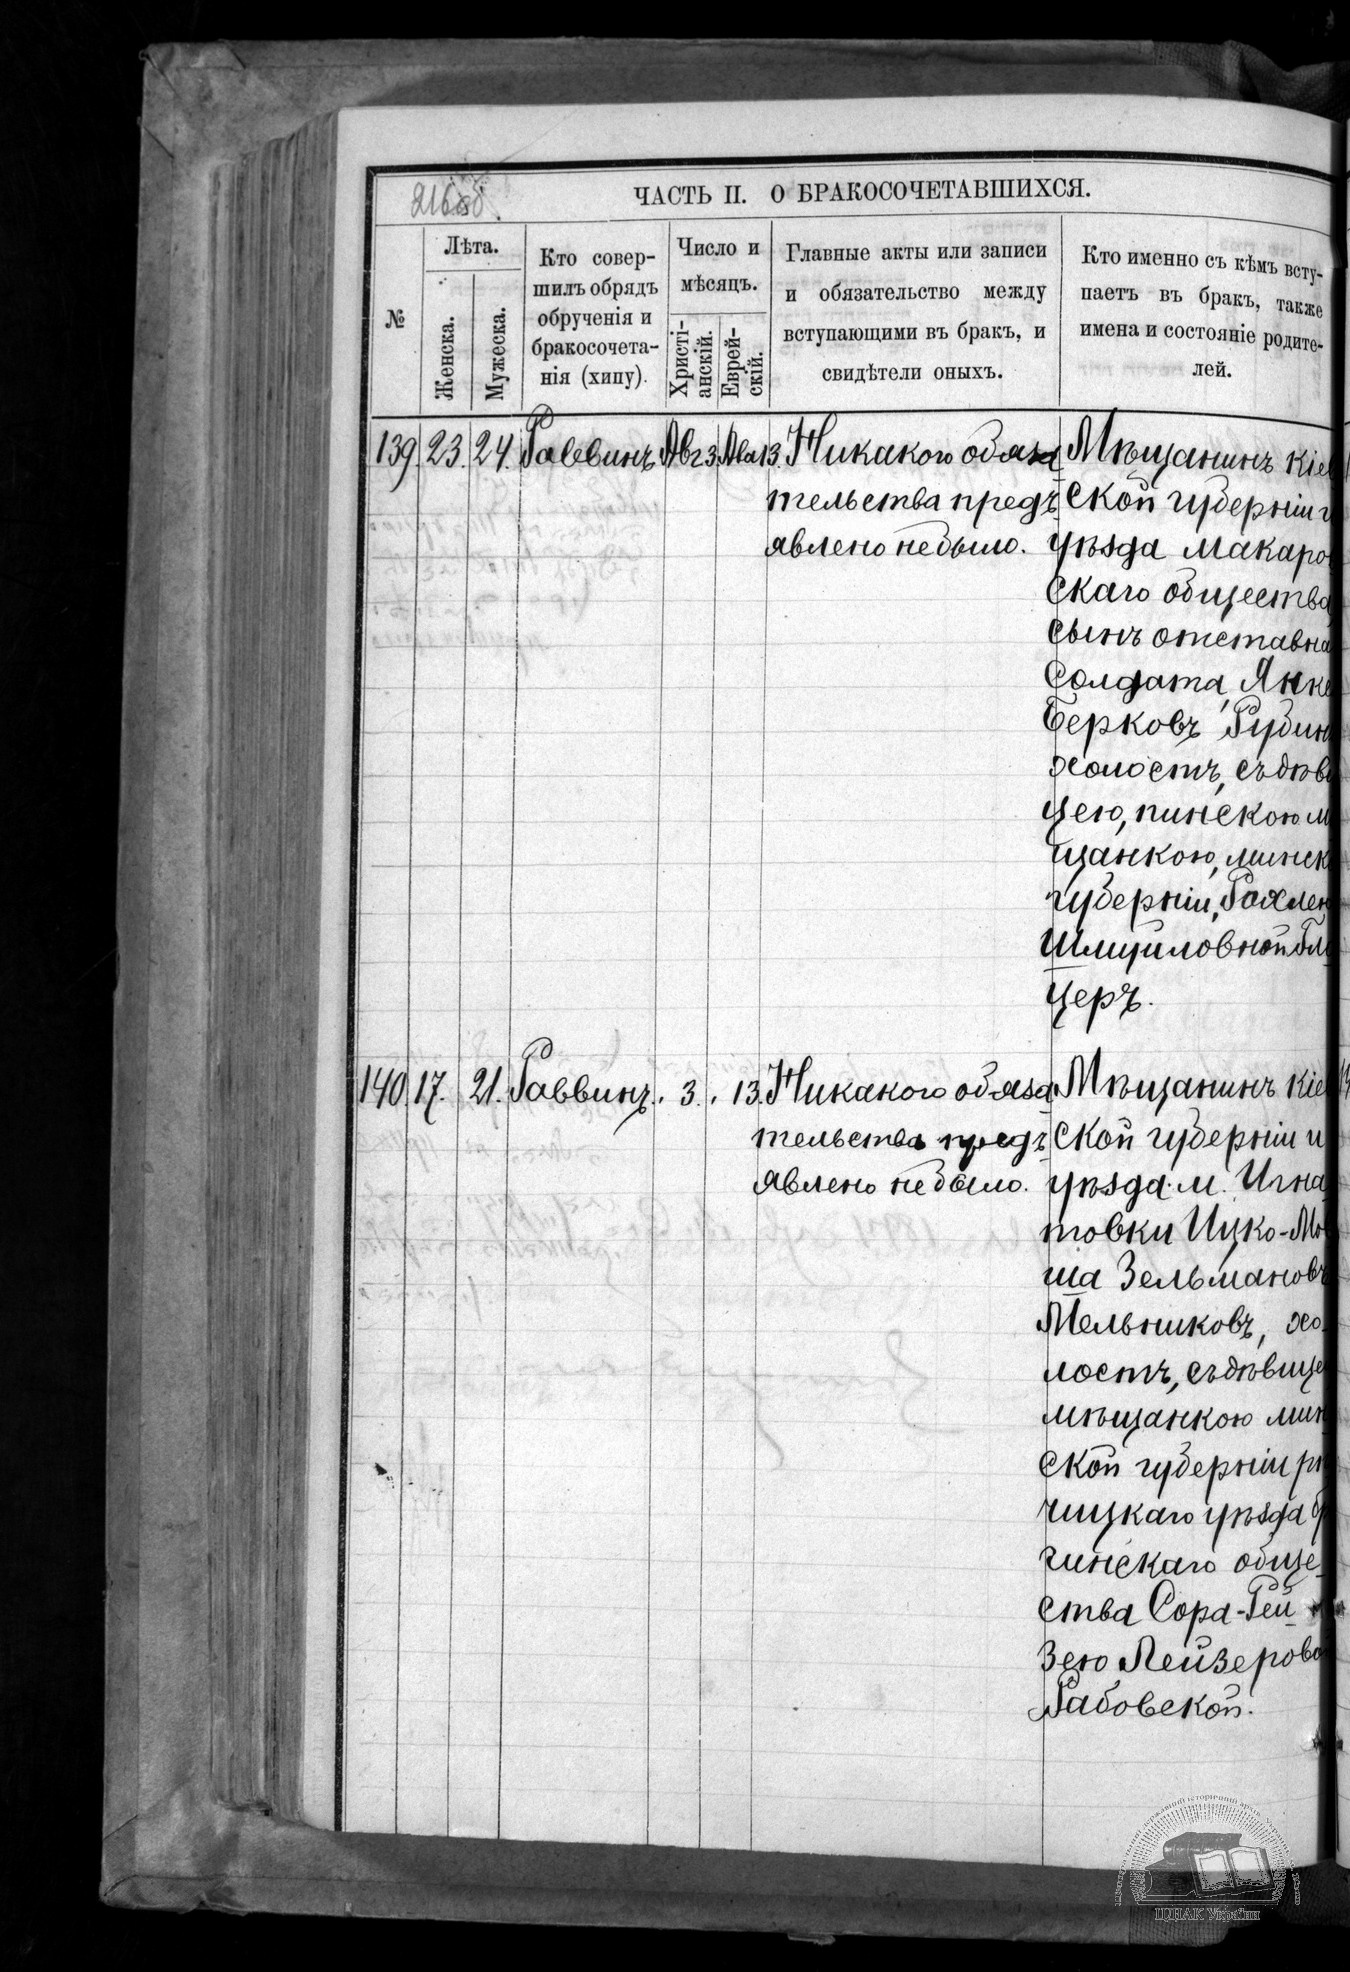 216об.
ЧАСТЬ II. О БРАКОСОЧЕТАВШИХСЯ.
№
Лѣта.
Женска.
Мужеска.
Кто совер-
шилъ обрядъ
обрученія и
бракосочета-
нія (хипу).
Число и
мѣсяцъ.
Христі-
анскій.
Еврей-
скій.
Главные акты или записи
и обязательство между
вступающими въ бракъ, и
свидѣтели оныхъ.
Кто именно съ кѣмъ всту-
паетъ въ бракъ, также
имена и состояніе родите-
лей.
139. 23. 24. Раввинъ Авг 3. Ава 13. Никакого обяза
тельства предъ-
явлено небыло.
Мѣщанинъ Кіев
ской губерніи и
уѣзда Макаров
скаго общества,
сынъ отставна
Солдата, Янке
Берковъ Рубин
холостъ, съ дѣви
цею, пинскою м
щанкою, минск
губерніи, Рахлен
Шмуйловной Гл
церъ.
140. 17. 21. Раввинъ. 3. 13. Никакого обяза
тельства предъ-
явлено небыло.
Мѣщанинъ Кіев
ской губерніи и
уѣзда м. Игна
товки Ицко-Мов
ша Зельмановъ
Мельниковъ, хо-
лостъ, съ дѣвице
мѣщанкою мин
ской губерніи рѣ
чицкаго уѣзда б
гинскаго обще-
ства Сора-Рей
зею Лейзерово
Рабовской.
ЦДІАК України